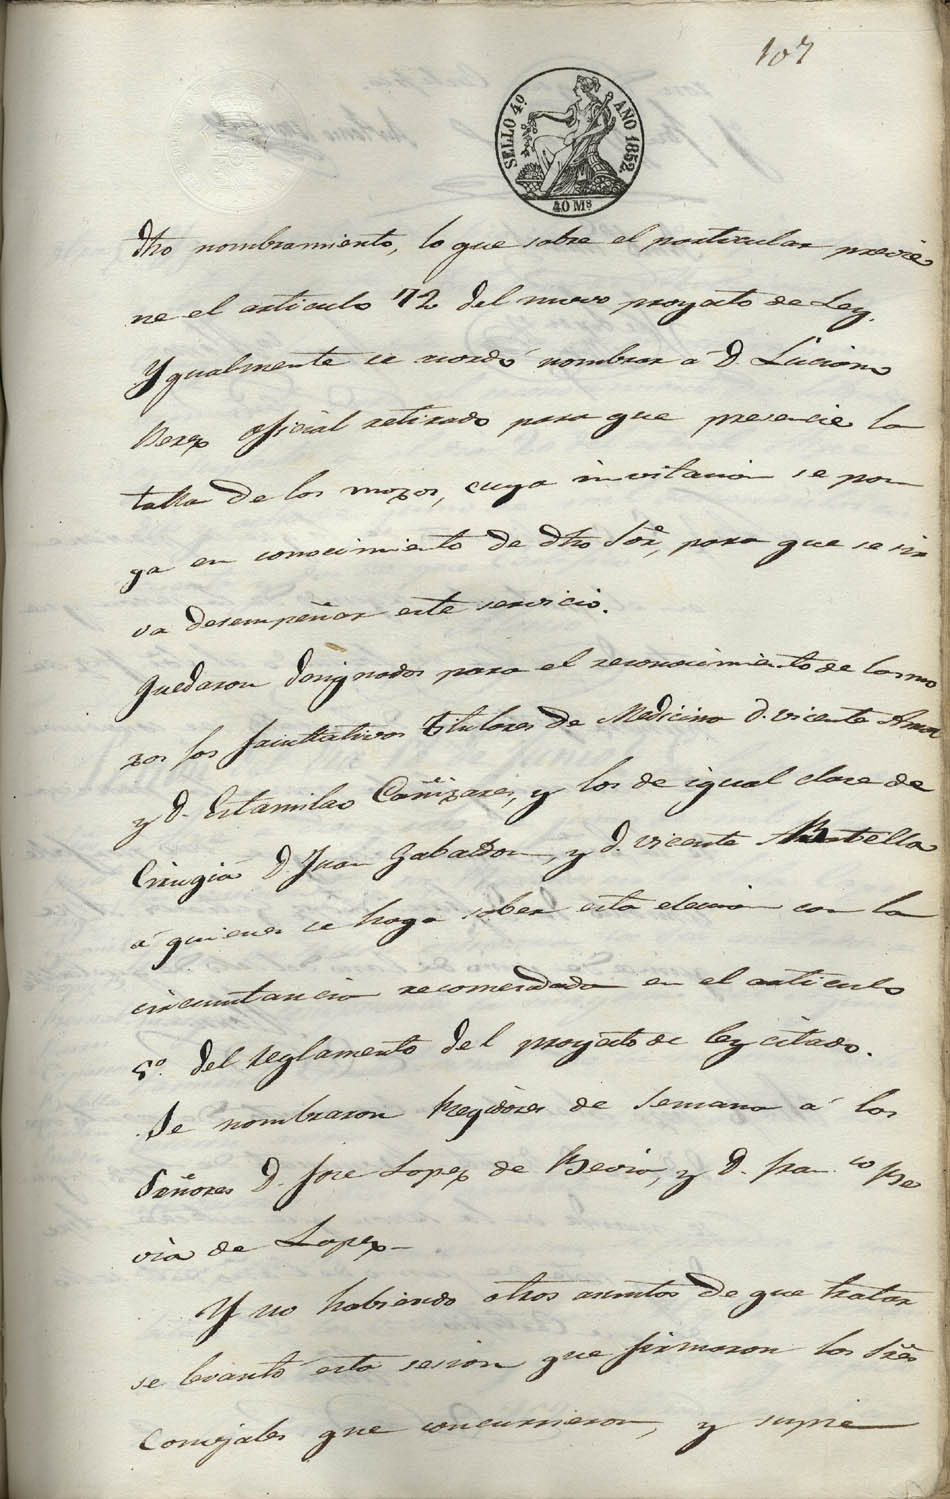 107
SELLO 4º AÑO 1852.
40 Ms
dho nombramiento, lo que sobre el particular previe
ne el articulo 72 del nuevo proyecto de Ley.
Ygualmente se acordó nombrar á D. Luciano
Perez oficial retirado para que presencie la
talla de los mozos, cuya invitacion se pon
ga en conocimiento de dho Sor, para que se sir
va desempeñar este servicio.
Quedaron designados para el reconocimiento de los mo
zos los facultativos Titulares de Medicina D. Vicente Amor
y D. Estamilao Cañizares, y los de igual clase de
Cirugia D. Juan Gabaldon, y D. Vicente Botella
á quienes se haga saber esta eleccion con la
circunstancia recomendada en el articulo
5º. del reglamento del proyecto de ley citado.
Se nombraron Regidores de semana á los
Señores D. Jose Lopez de Bevia, y D. Fran.co Be
via de Lopez-
Y no habiendo otros asuntos de que tratar
se levantó esta sesion que firmaron los Sres
Concejales que concurrieron, y supie